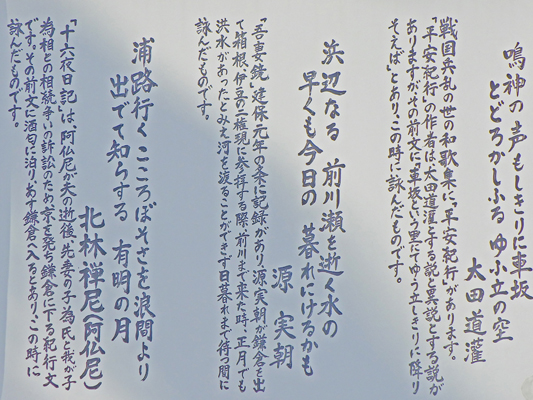 鳴神の声もしきりに車坂
とどろかしふるゆふ立の空
太田道灌
戦国兵乱の世の和歌集に「平安紀行」があります。
「平安紀行」の作者は、太田道灌とする説と異説とする説が
ありますが、その前文に「車坂という里にてゆう立しきりに降り
そえば」とあり、この時に詠んだものです。
浜辺なる前川瀬を逝く水の
早くも今日の暮れにけるかも
源実朝
「吾妻鏡」建保元年の条に記録があり、源実朝が鎌倉を出
て箱根、伊豆の二権現に参拝する際、前川まで来た時、正月でも
洪水があったとみえ河を渡ることができず日暮れまで待つ間に
詠んだものです。
浦路行くこころぼそさを浪間より
出でて知らする有明の月
北林禅尼(阿仏尼)
「十六夜日記」は、阿仏尼が夫の逝後、先妻の子為氏と我が子
為相との相続争いの訴訟のため、京を発ち鎌倉に下る紀行文
です。その前文に酒匂に泊りあす鎌倉へ入るとあり、この時に
詠んだものです。